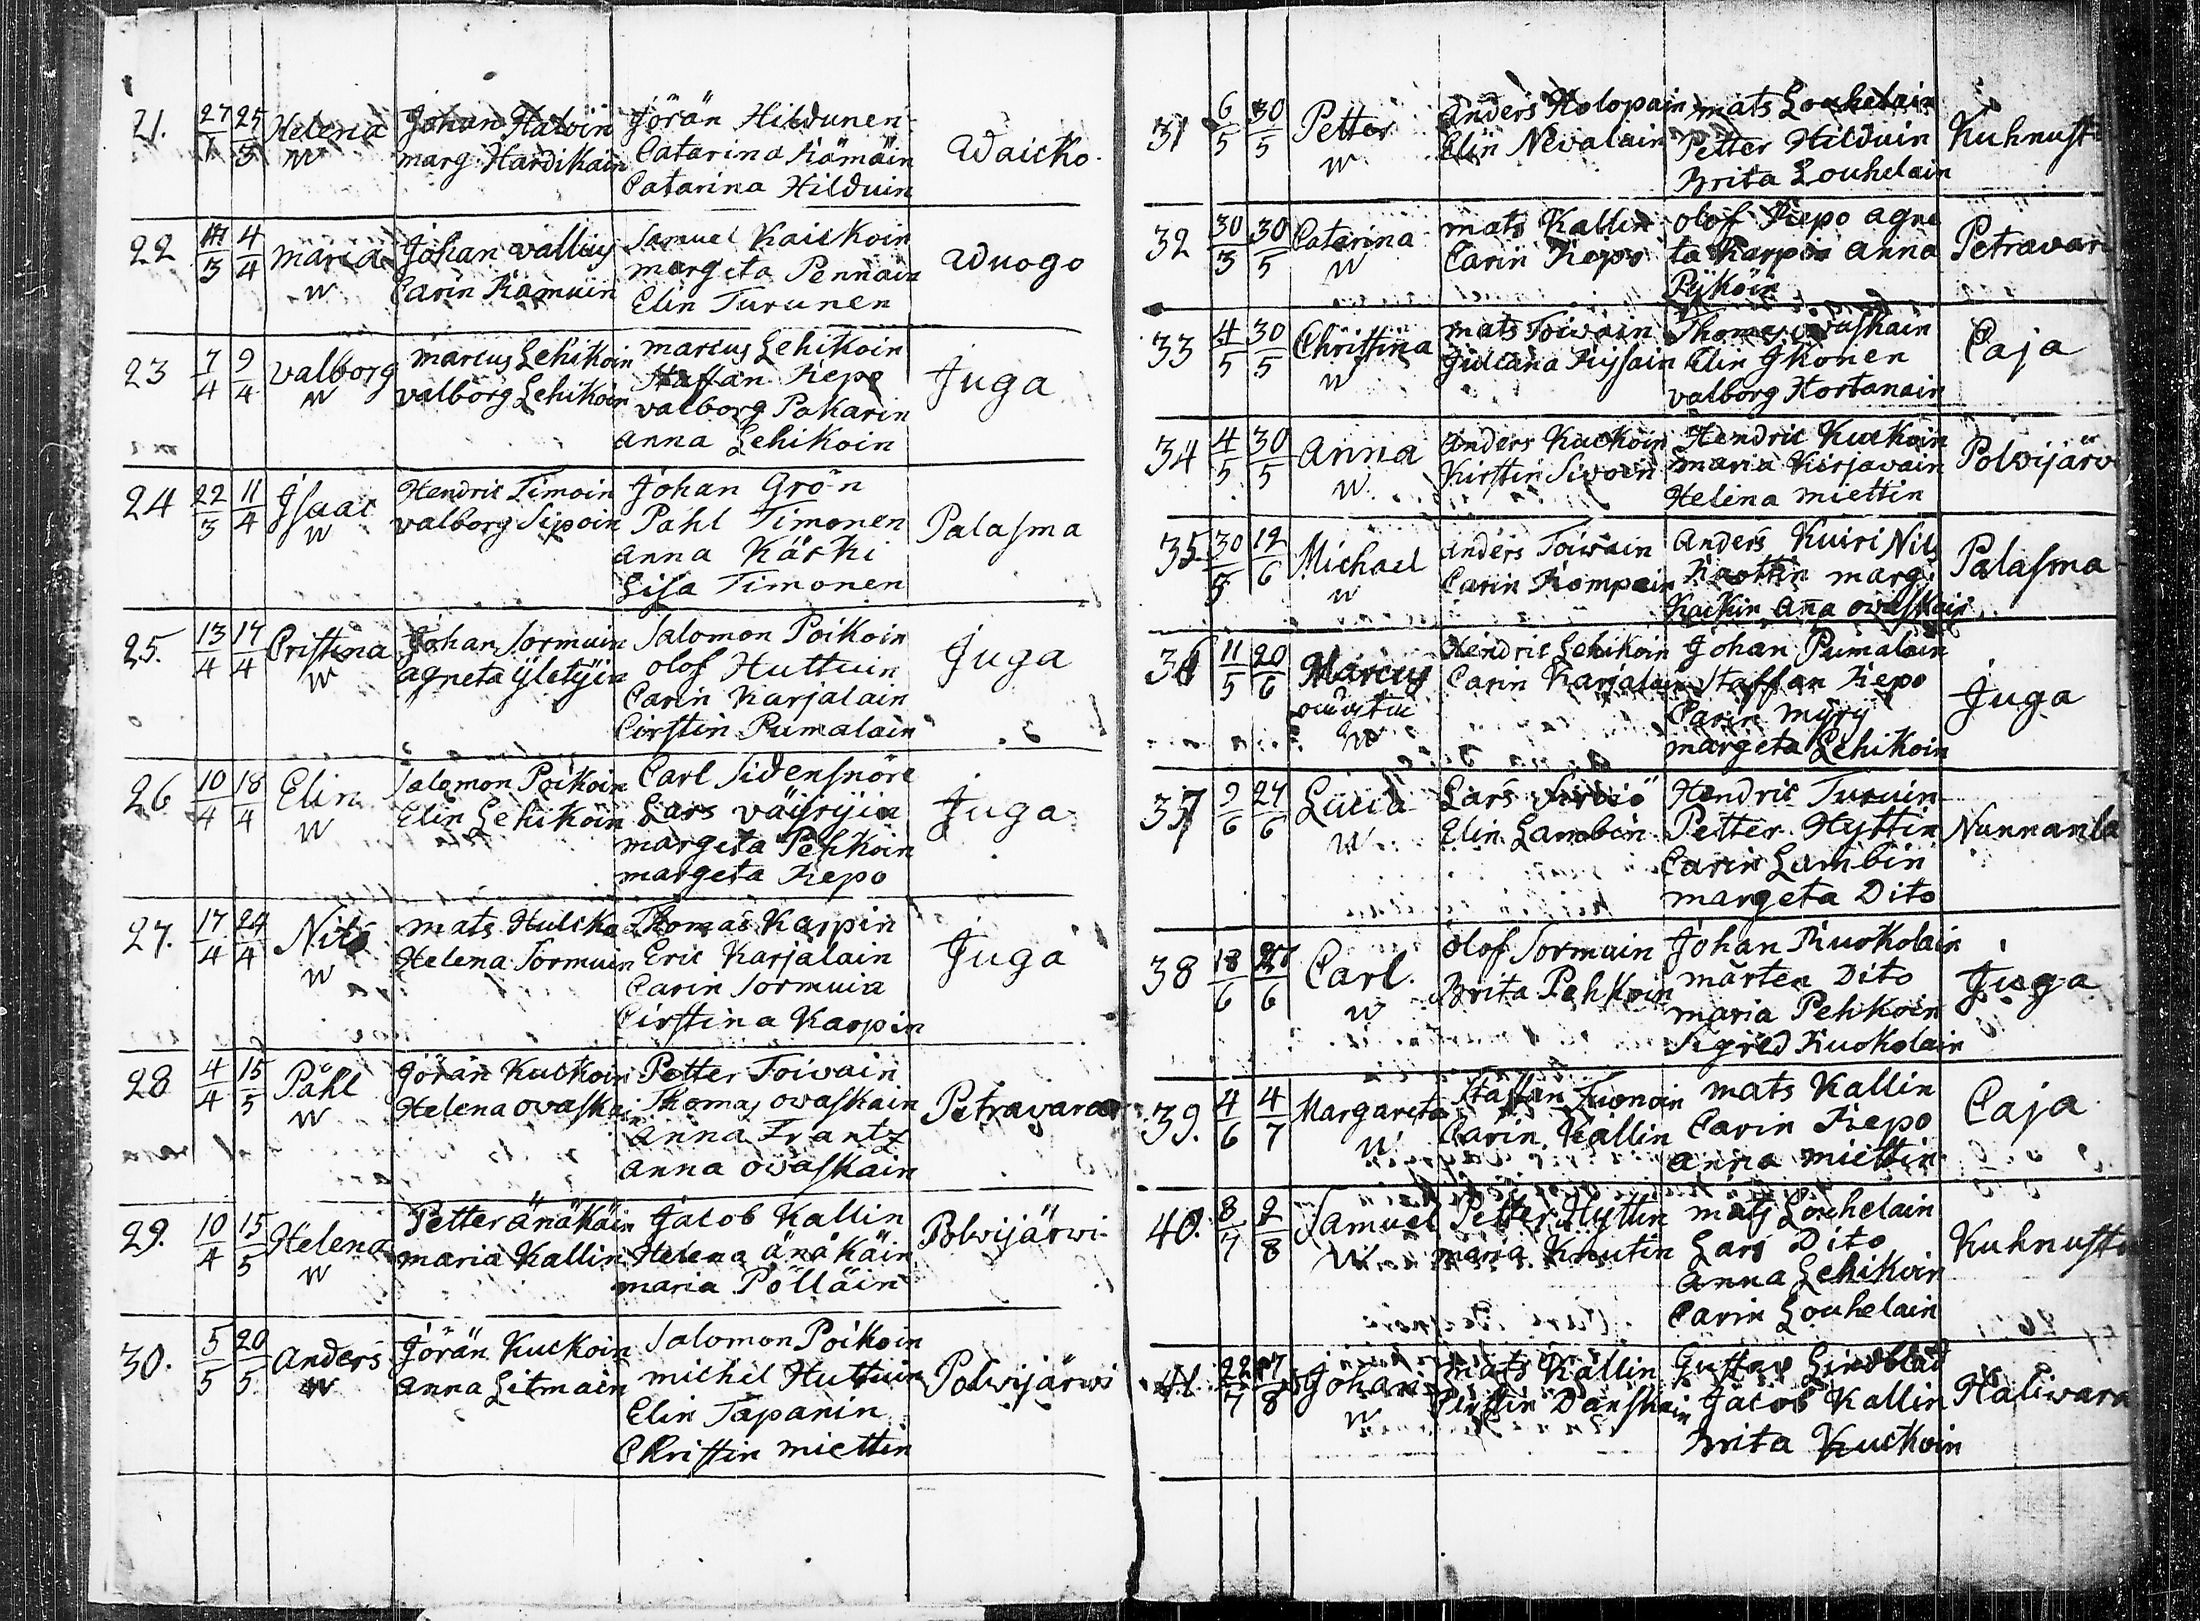 21. 27/1 25/3 Helena Johan Halvin Jörän Hildunen
w marg. Hardikain Catarina Kämäin Waicko
Catarina Hilduin
22 4/4 Maria Johan Wallius Samuel Kaickoin
w Carin Kamuin margeta Pennain Wuogo
Elin Turunen
23 7/4 9/4 Valborg Marcus Lehikoin Marcus Lehikoin
w Valborg Lehikoin Staffan Repo Juga
Valborg Pakarin
Anna Lehikoin
24 22/3 11/4 Jsaac Hendric Timoin Johan Grön
w Valborg Sipoin Påhl Timonen Palasma
Anna Käski
Lisa Timonen
25. 13/4 17/4 Cristina Johan Sormuin Salomon Poikoin
w Agneta Yletyin Olof Huttuin Juga
Carin Karjalain
Cirstin Pumalain
26 10/4 18/4 Elin Salomon Poikoin Carl Sidensnöre
w Elin Lehikoin Lars Väyryin Juga
margeta Pehkoin
margeta Repo
27. 17/4 24/4 Nils Mats Hulcko Thomas Karpin
w Helena Sormuin Eric Karjalain Juga
Carin Sormuin
Cirstina Karpin
28 4/4 15/5 Påhl Jörän Kuckoin Petter Toivain
w Helena Ovaskain Thomas Ovaskain Petravara
Anna Frantz
Anna Ovaskain
29. 10/4 15/5 Helena Petter Änäkäin Jacob Kallin Polvijärwi
w Maria Kallin Helena Änäkäin
Maria Pölläin
30. 5/5 20/5 Anders Jörän Kuckoin Salomon Poikoin
w Anna Litmain Michel Huttuin Polvijärwi
Elin Tapanin
Christin Miettin
31 6/5 30/5 Petter Anders Holopain Mats Louhelain
w Elin Nevalain Petter Hilduin Kuhnust
Brita Louhelain
32 30/3 30/5 Catarina Mats Kallin Olof Repo Agne
w Carin Repo ta Karpin Anna Petravar
Pyköin
33 4/5 30/5 Christina Mats Toivain Thomas Ovaskain
w Juliana Ryssain Elin Jkonen Caja
Valborg Hortanain
34 4/5 30/5 Anna Anders Kuckoin Hendric Kuckoin
w Kirstin Sivoin Maria Kirjavain Polvijärv
Helena Miettin
35 30/5 12/6 Michael Anders Toivain Anders Kuiri Nils
w Carin Kompain marg. Palasma
Kackin Aña Ovaskain
36 11/5 20/6 Marcus Hendric Lehikoin Johan Pumalain
w Carin Karjalain Staffan Repo Juga
Carin Myry
margeta Lehikoin
37 9/6 24/6 Lucia Lars Hendric Turuin
w Elin Lambin Petter Hyttin Nunnanla
Carin Lambin
margeta Dito
38 18/6 Carl Olof Sormuin Johan Ruokolain
w Brita Pehkoin Mårten Dito Juga
Maria Pehkoin
Sigred Ruokolain
39. 4/6 4/7 Margareta Staffan Tuonoin Mats Kallin
w Carin Kallin Carin Repo Caja
Anna Miettin
40. 8/7 2/8 Samuel Petter Hyttin Mats Louhelain
w Maria Knutin Lars Dito Kuhnusta
Anna Lehikoin
Carin Louhelain
41. 22/7 Johan Mats Kallin Gustav Lindblad
w Danskain Jacob Kallin Haliwara
Brita Kuckoin